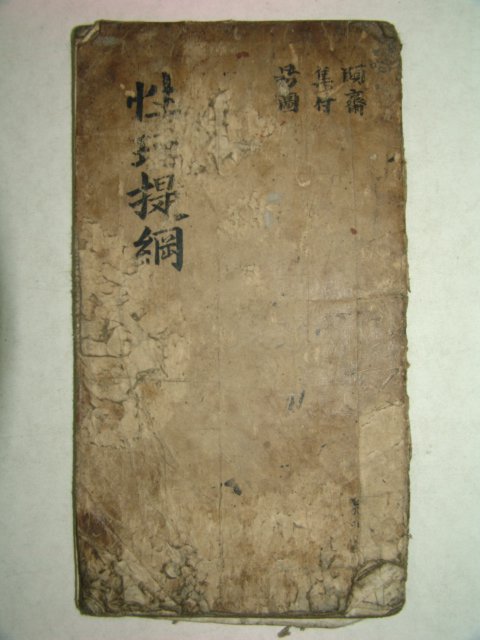 性理提綱
頤齋
集付
呂圖